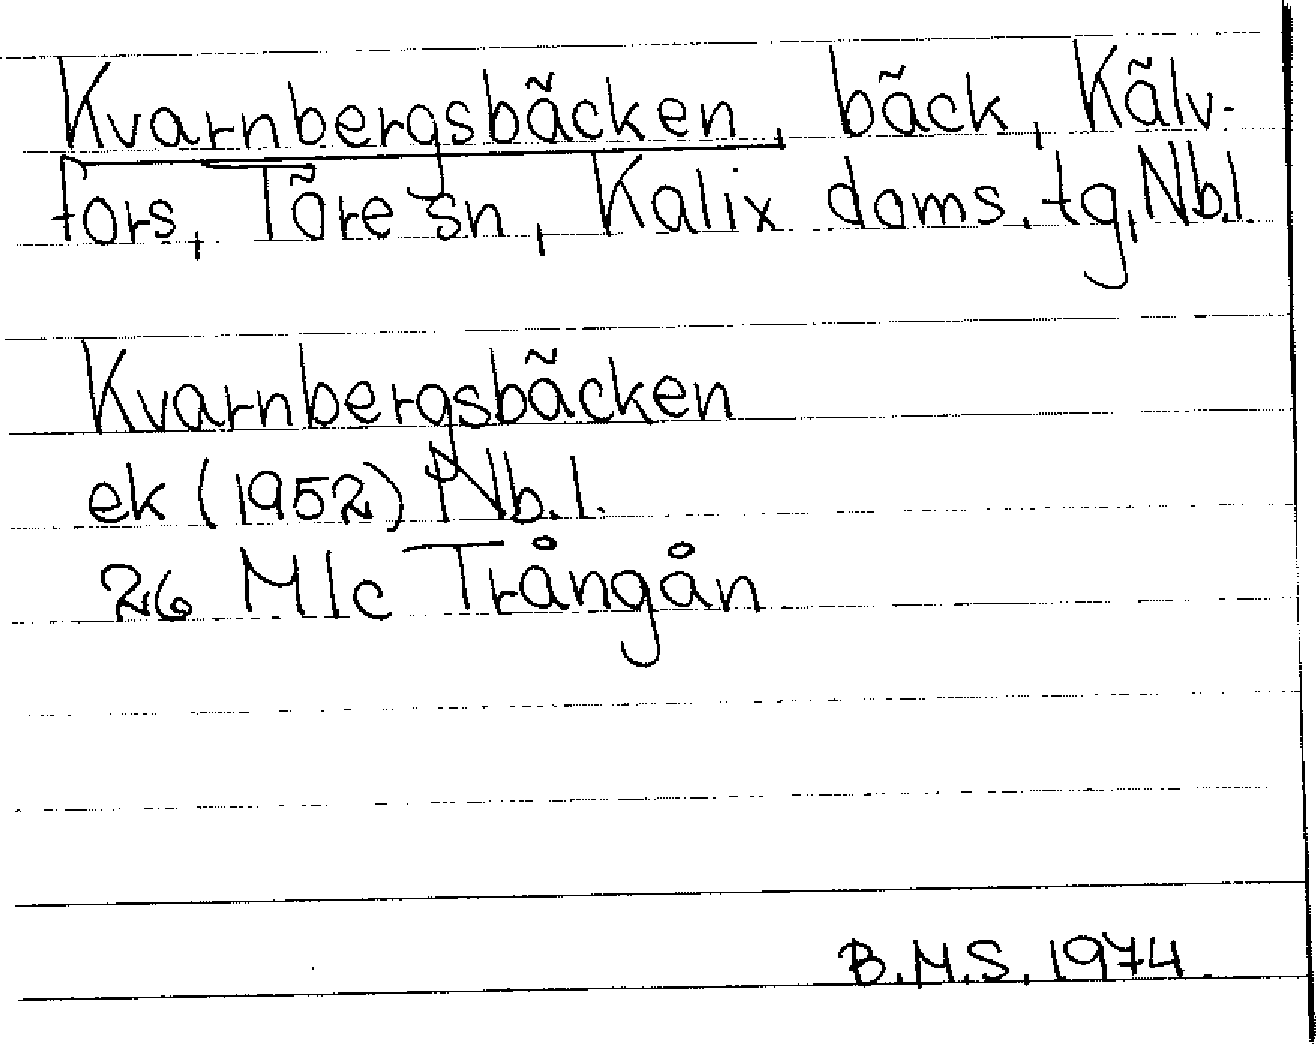 Kvarnbergsbäcken, bäck, Kälv-
fors, Töre sn, Kalix doms. tg, Nb.l.
Kvarnbergsbäcken
ek (1952) Nb.l.
26 M1c Trångån
B.M.S. 1974.